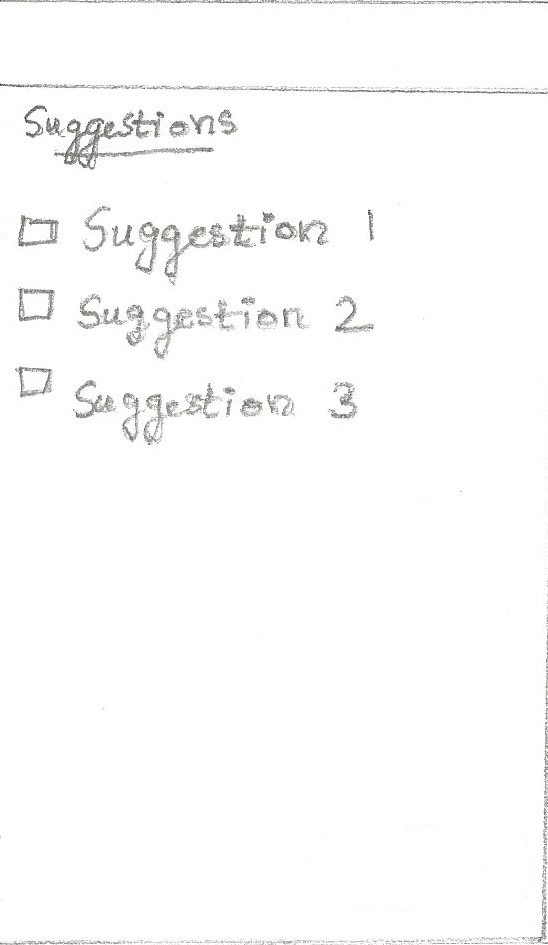 Suggestions
Suggestion 1
Suggestion 2
Suggestion 3